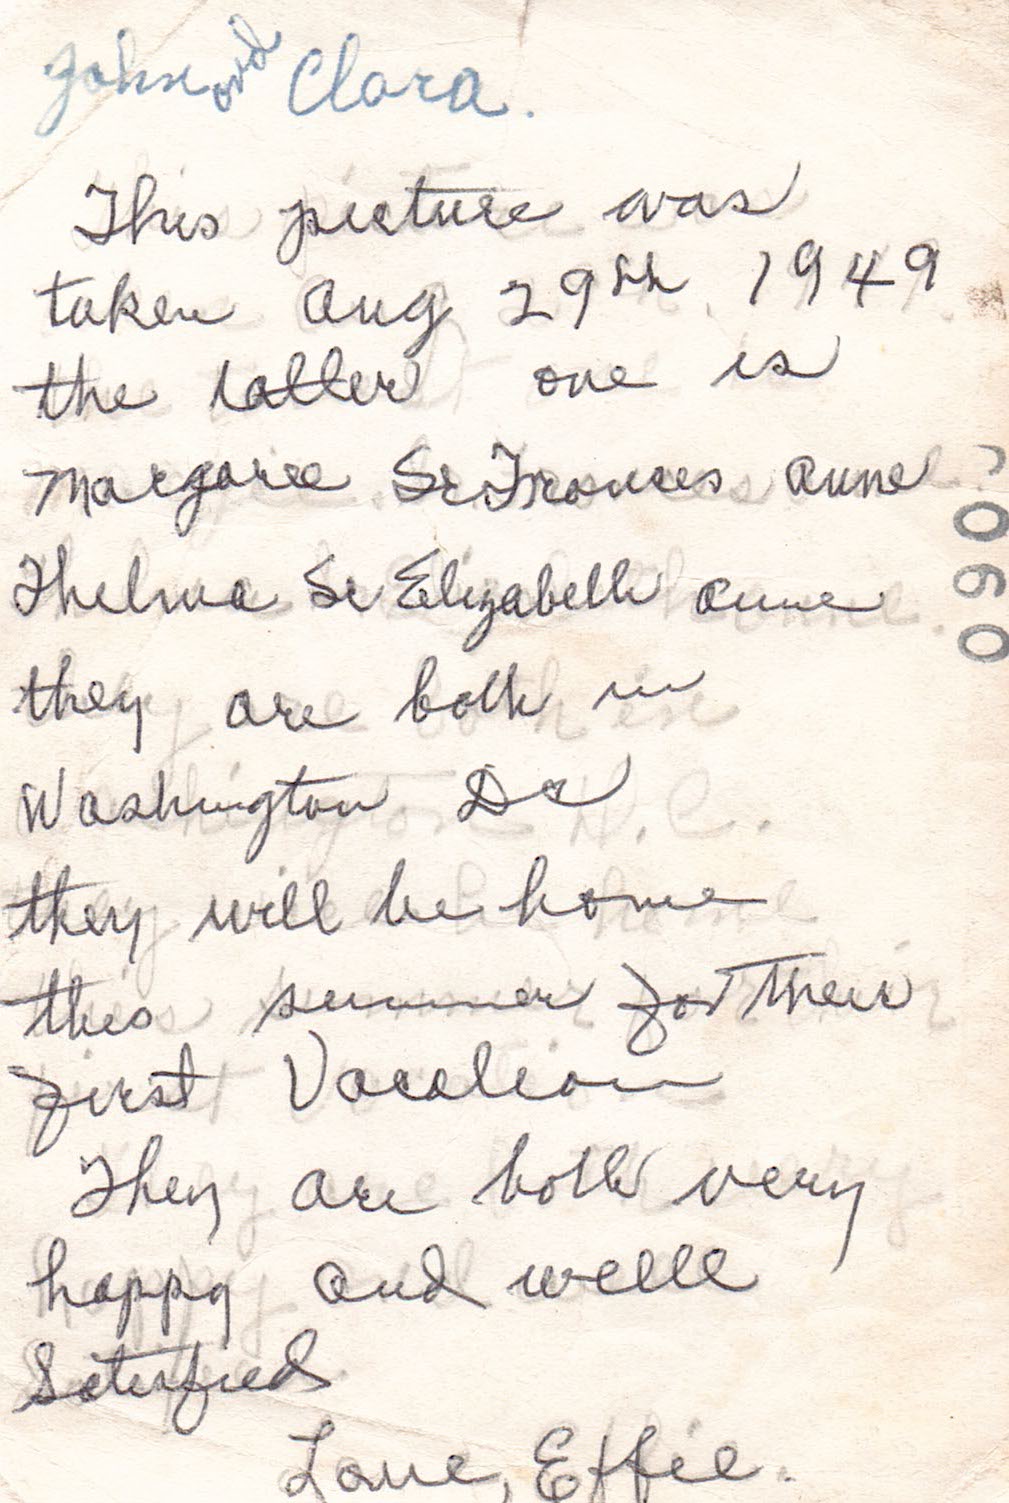 John and Clara.
This picture was
taken Aug 29th 1949
the latter one is
Margaree Sr Frances Anne
Thelma Sr Elizabeth Anne
they are both in
Washington Dc
they will be home
this summer for their
first Vacation
They are both very
happy and welle
Satisfied
Love, Effie.
090